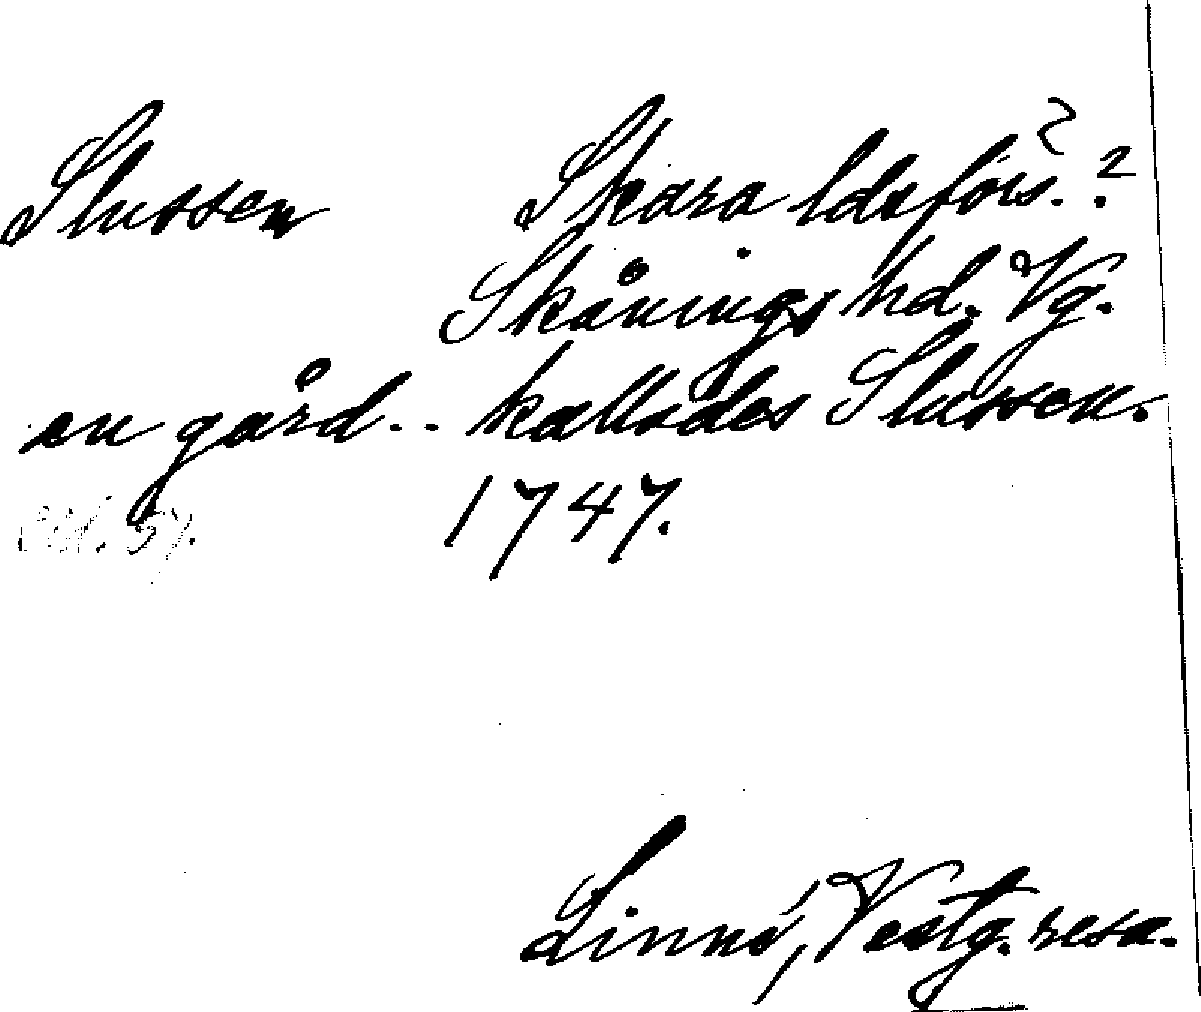 Slussen Skara ldsförs.?
Skånings hd. Vg.
en gård.. kallades Slussen.
1747.
Linné, Vestg. resa.